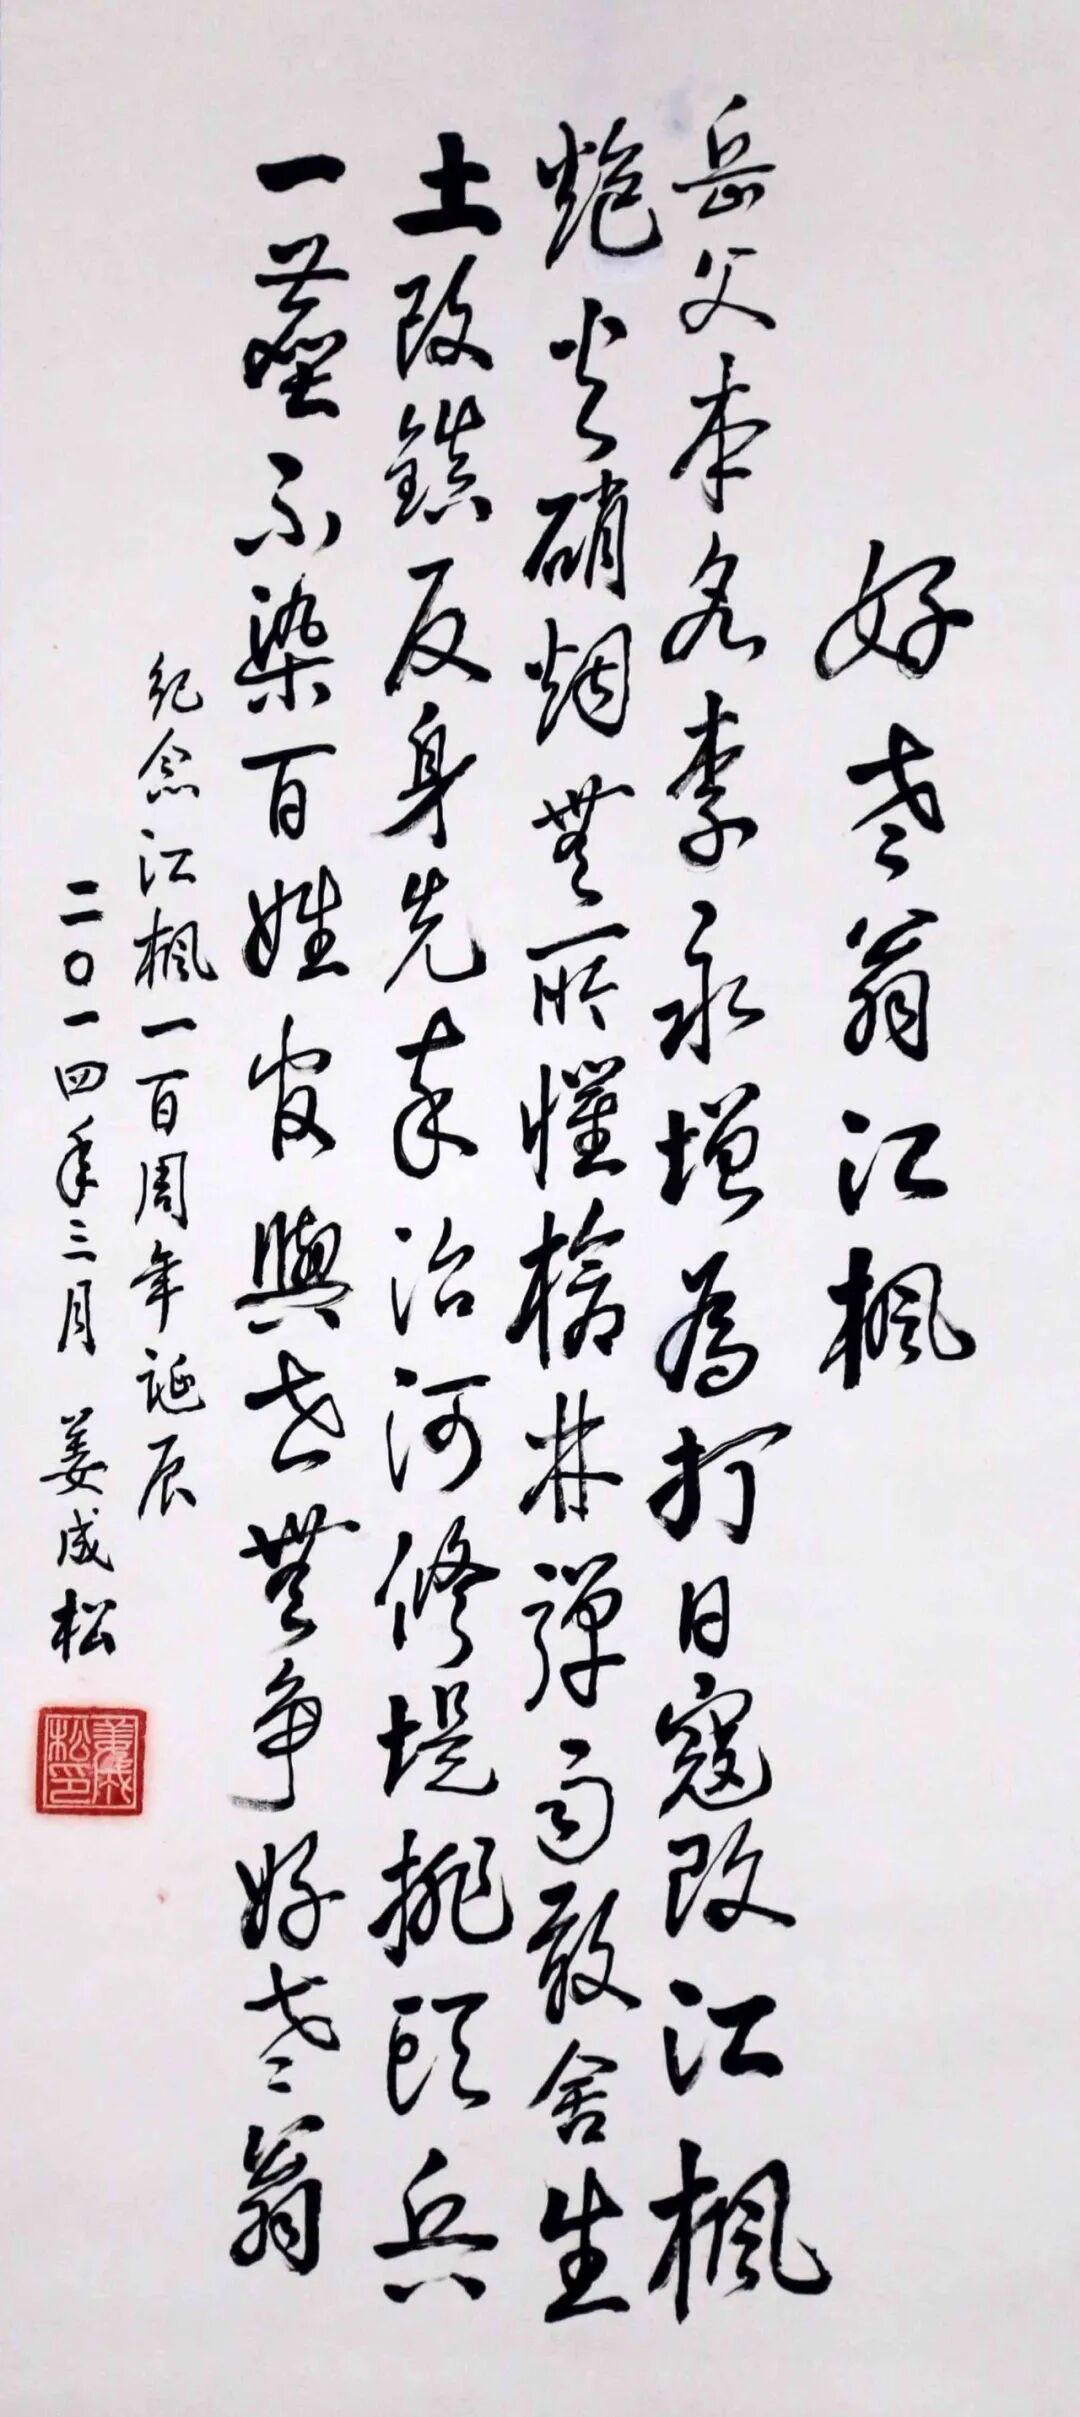 好老翁江枫
岳父本名李永增为打日寇改江枫
炮火硝烟无所惧枪林弹雨敢舍生
土改镇反身先率治河修堤挑头兵
一尘不染百姓官与世无争好老翁
纪念江枫一百周年诞辰
二〇一四年三月 姜成松
姜成松印